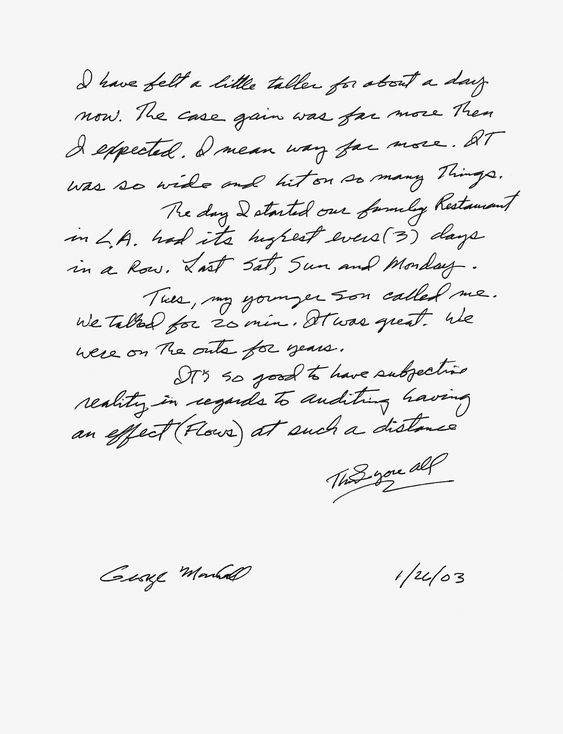 I have felt a little taller for about a day
now. The case gain was far more Then
I expected. I mean way far more. IT
was so wide and hit on so many Things.
The day I started our family Restaurant
in L.A. had its highest evers (3) days
in a Row. Last Sat, Sun and Monday.
Tues, my younger son called me.
We talked for 20 min. It was great. We
were on The outs for years.
IT's so good to have subjective
reality in regards to auditing having
an effect (Flows) at such a distance
you all
George 1/26/03